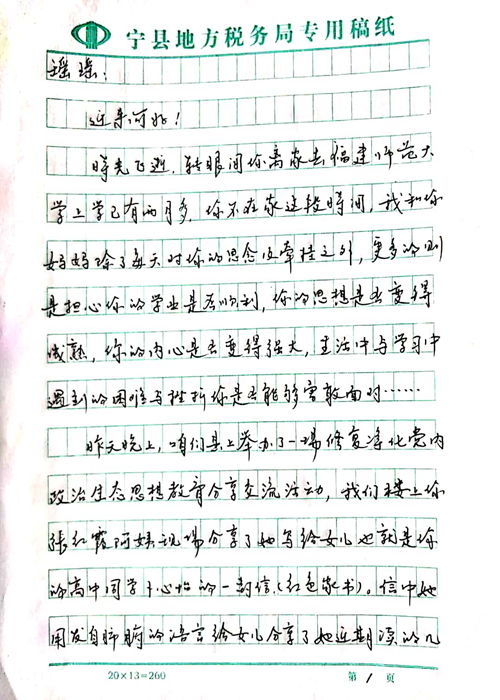 宁县地方税务局专用稿纸
瑶瑶：
近来可好！
時光飞逝，转眼间你离家去福建师范大
学上学已有两月多，你不在家这段時间，我和你
妈妈除了每天对你的思念及牵挂之外，更多的则
是担心你的学业是否顺利，你的思想是否变得
成熟，你的内心是否变得强大，生活中与学习中
遇到的困难与挫折你是否能够勇敢面对……
昨天晚上，咱们县上举办了一場修复净化党内
政治生态思想教育分享交流活动，我们楼上你
张红霞阿姨现場分享了她写给女儿也就是你
的高中同学卜心怡的一封信（红色家书）。信中她
用发自肺腑的语言给女儿分享了她近期读的几
20×13=260
第 1 页